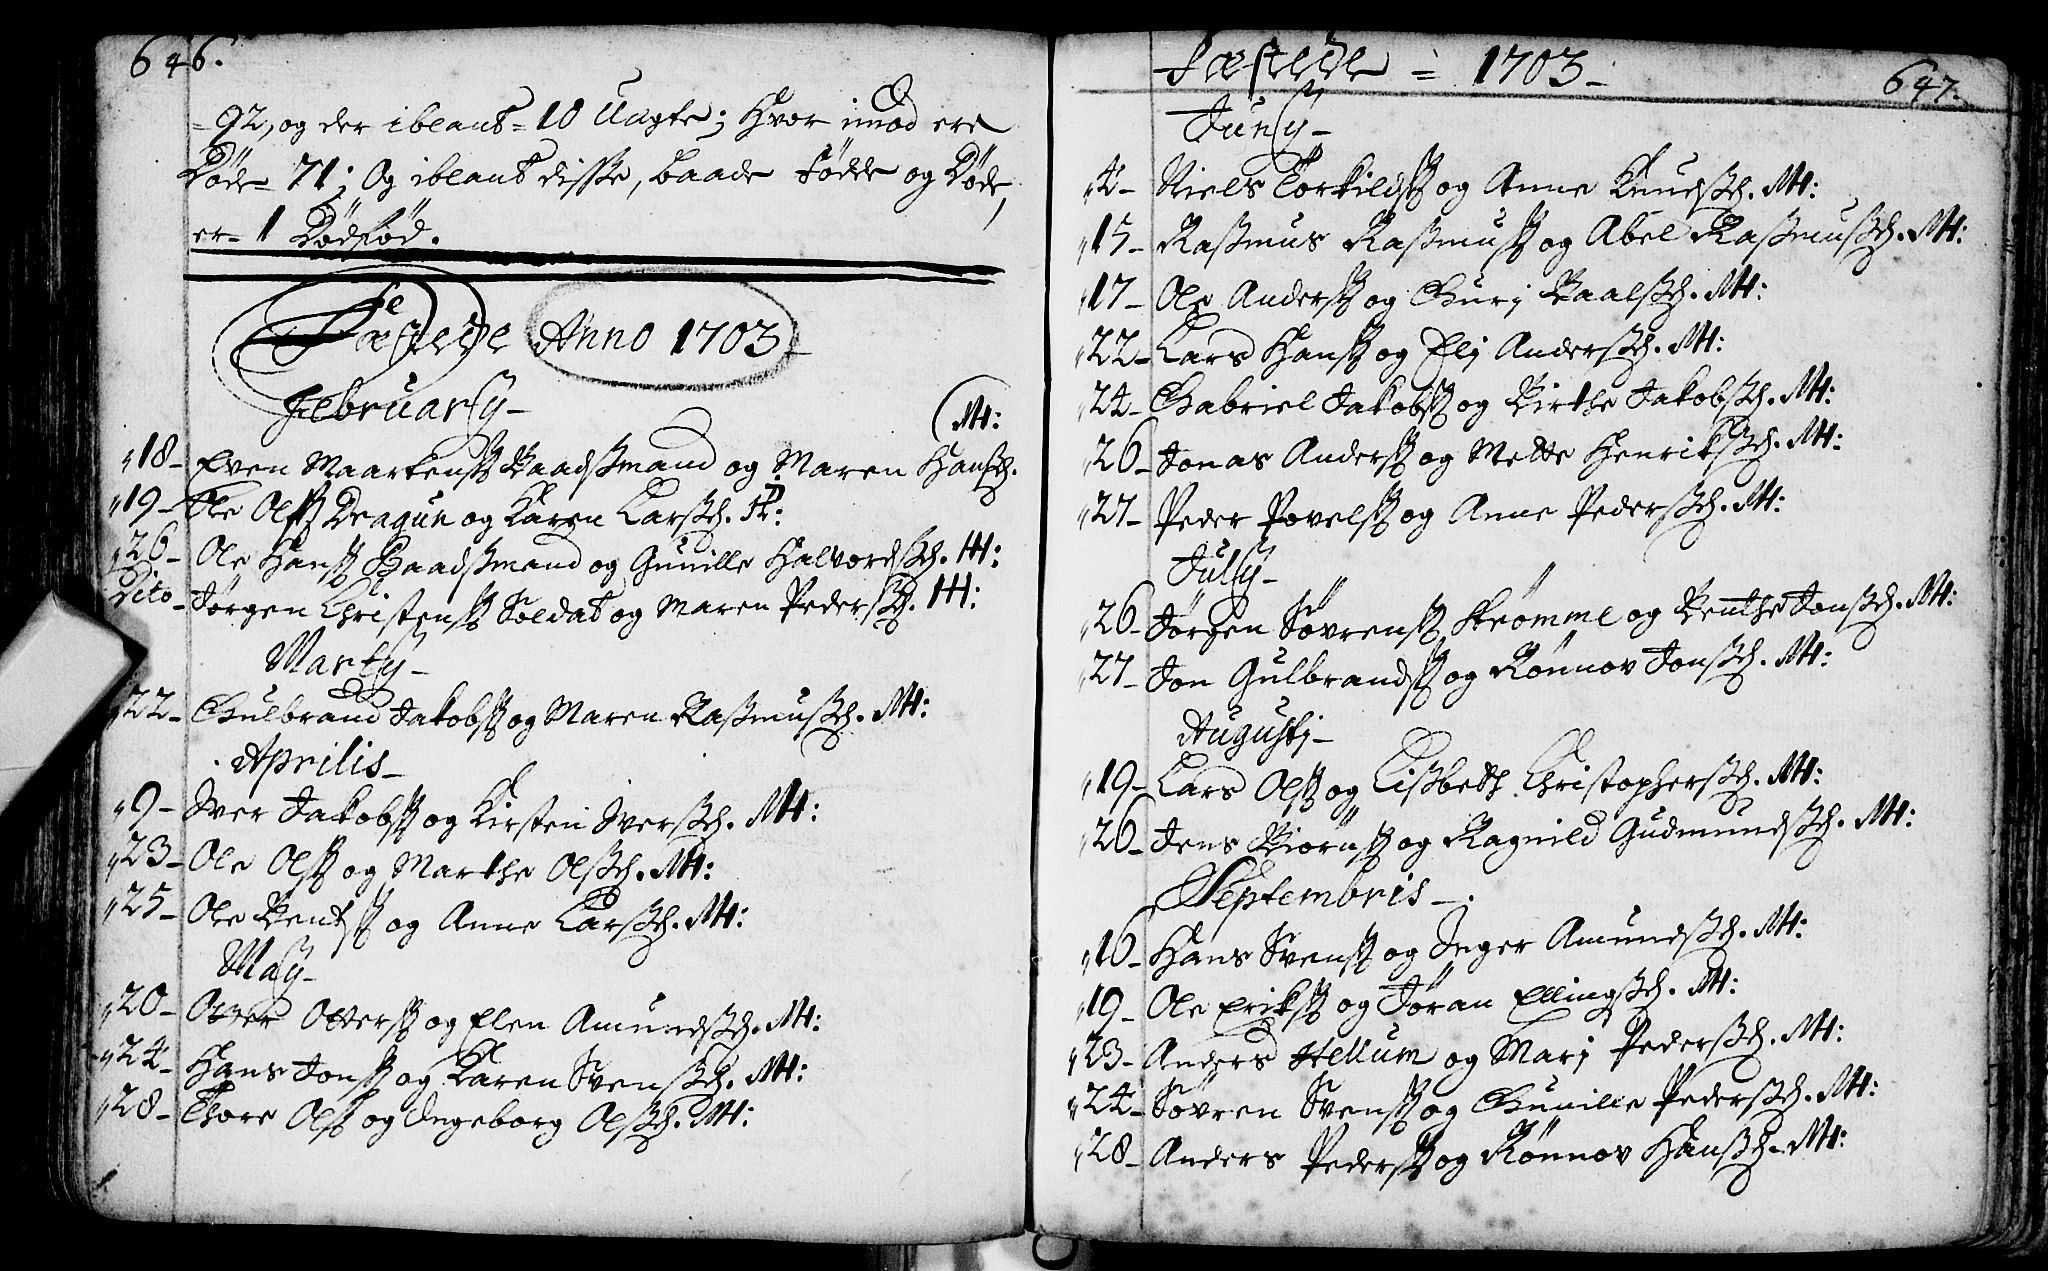 646.
= 92, og der iblant = 10 Uægte; Hvor imod ere
Døde = 71; Og iblant disse, baade Fødde og Døde,
er = 1 Dødfød.
Fæstede Anno 1703
Februarij
(M:
18 - Even Maartenss. Baadssmand og Maren Hanssd.
19 - Ole Olss. Dragun og Karen Larssd. H:
26 - Ole Hanss. Baadssmand og Gunille Halvordssd. M:
Dito - Jørgen Christenss. Soldat og Maren Pederssd. M:
Martij -
22 - Gulbrand Jakobss. og Maren Rassmussd. M:
Aprilis -
9 - Iver Jakobss. og Kirsten Iverssd. M:
23 - Ole Olss. og Marthe Olssd. M:
25 - Ole Bentss. og Anne Larssd. M:
Maij -
20 - Otter Otterss. og Elen Amundssd. M:
24 - Hans Jonss. og Karen Svenssd. M:
28 - Thore Olss. og Ingeborg Olssd. M:
Fæstede = 1703 -
647.
Junij -
4 - Niels Torkildss. og Anne Knudssd. M:
15 - Rassmus Rassmuss. og Abel Rassmussd. M:
17 - Ole Anderss. og Gurj Paalssd. M:
22 - Lars Hanss. og Elj Anderssd. M:
24 - Gabriel Jakobss. og Birthe Jakobssd. M:
26 - Jonas Anderss. og Mette Henrikssd. M:
27 - Peder Povelss. og Anne Pederssd. M:
Julij -
26 - Jørgen Søvrenss. Strømme og Benthe Jonssd. M:
27 - Jon Gulbrandss. og Rønnov Jonssd. M:
Augustj -
19 - Lars Olss. og Lissbeth Christopherssd. M:
26 - Jens Biørnss. og Ragnild Gudmundssd. M:
Septembris -
16 - Hans Svenss. og Inger Amundssd. M:
19 - Ole Erikss. og Jøran Ellingssd. M:
23 - Anders Hellum og Marj Pederssd. M:
24 - Søvren Svenss. og Gunille Pederssd. M:
28 - Anders Pederss. og Rønnov Hanssd. M: